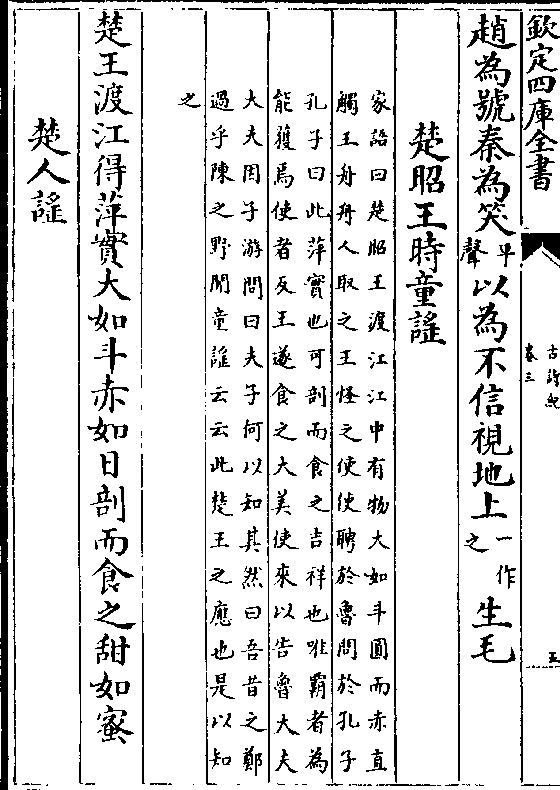 欽定四庫全書
古詩紀
卷三
五
趙為號秦為笑平聲以為不信視地上一作之生毛
楚昭王時童謡
家語曰楚昭王渡江江中有物大如斗圓而赤直
觸王舟舟人取之王怪之使使聘於魯問於孔子
孔子曰此萍實也可剖而食之吉祥也唯霸者為
能獲焉使者反王遂食之大美使來以告魯大夫
大夫因子游問曰夫子何以知其然曰吾昔之鄭
過乎陳之野聞童謡云云此楚王之應也是以知
之
楚王渡江得萍實大如斗赤如日剖而食之甜如蜜
楚人謡